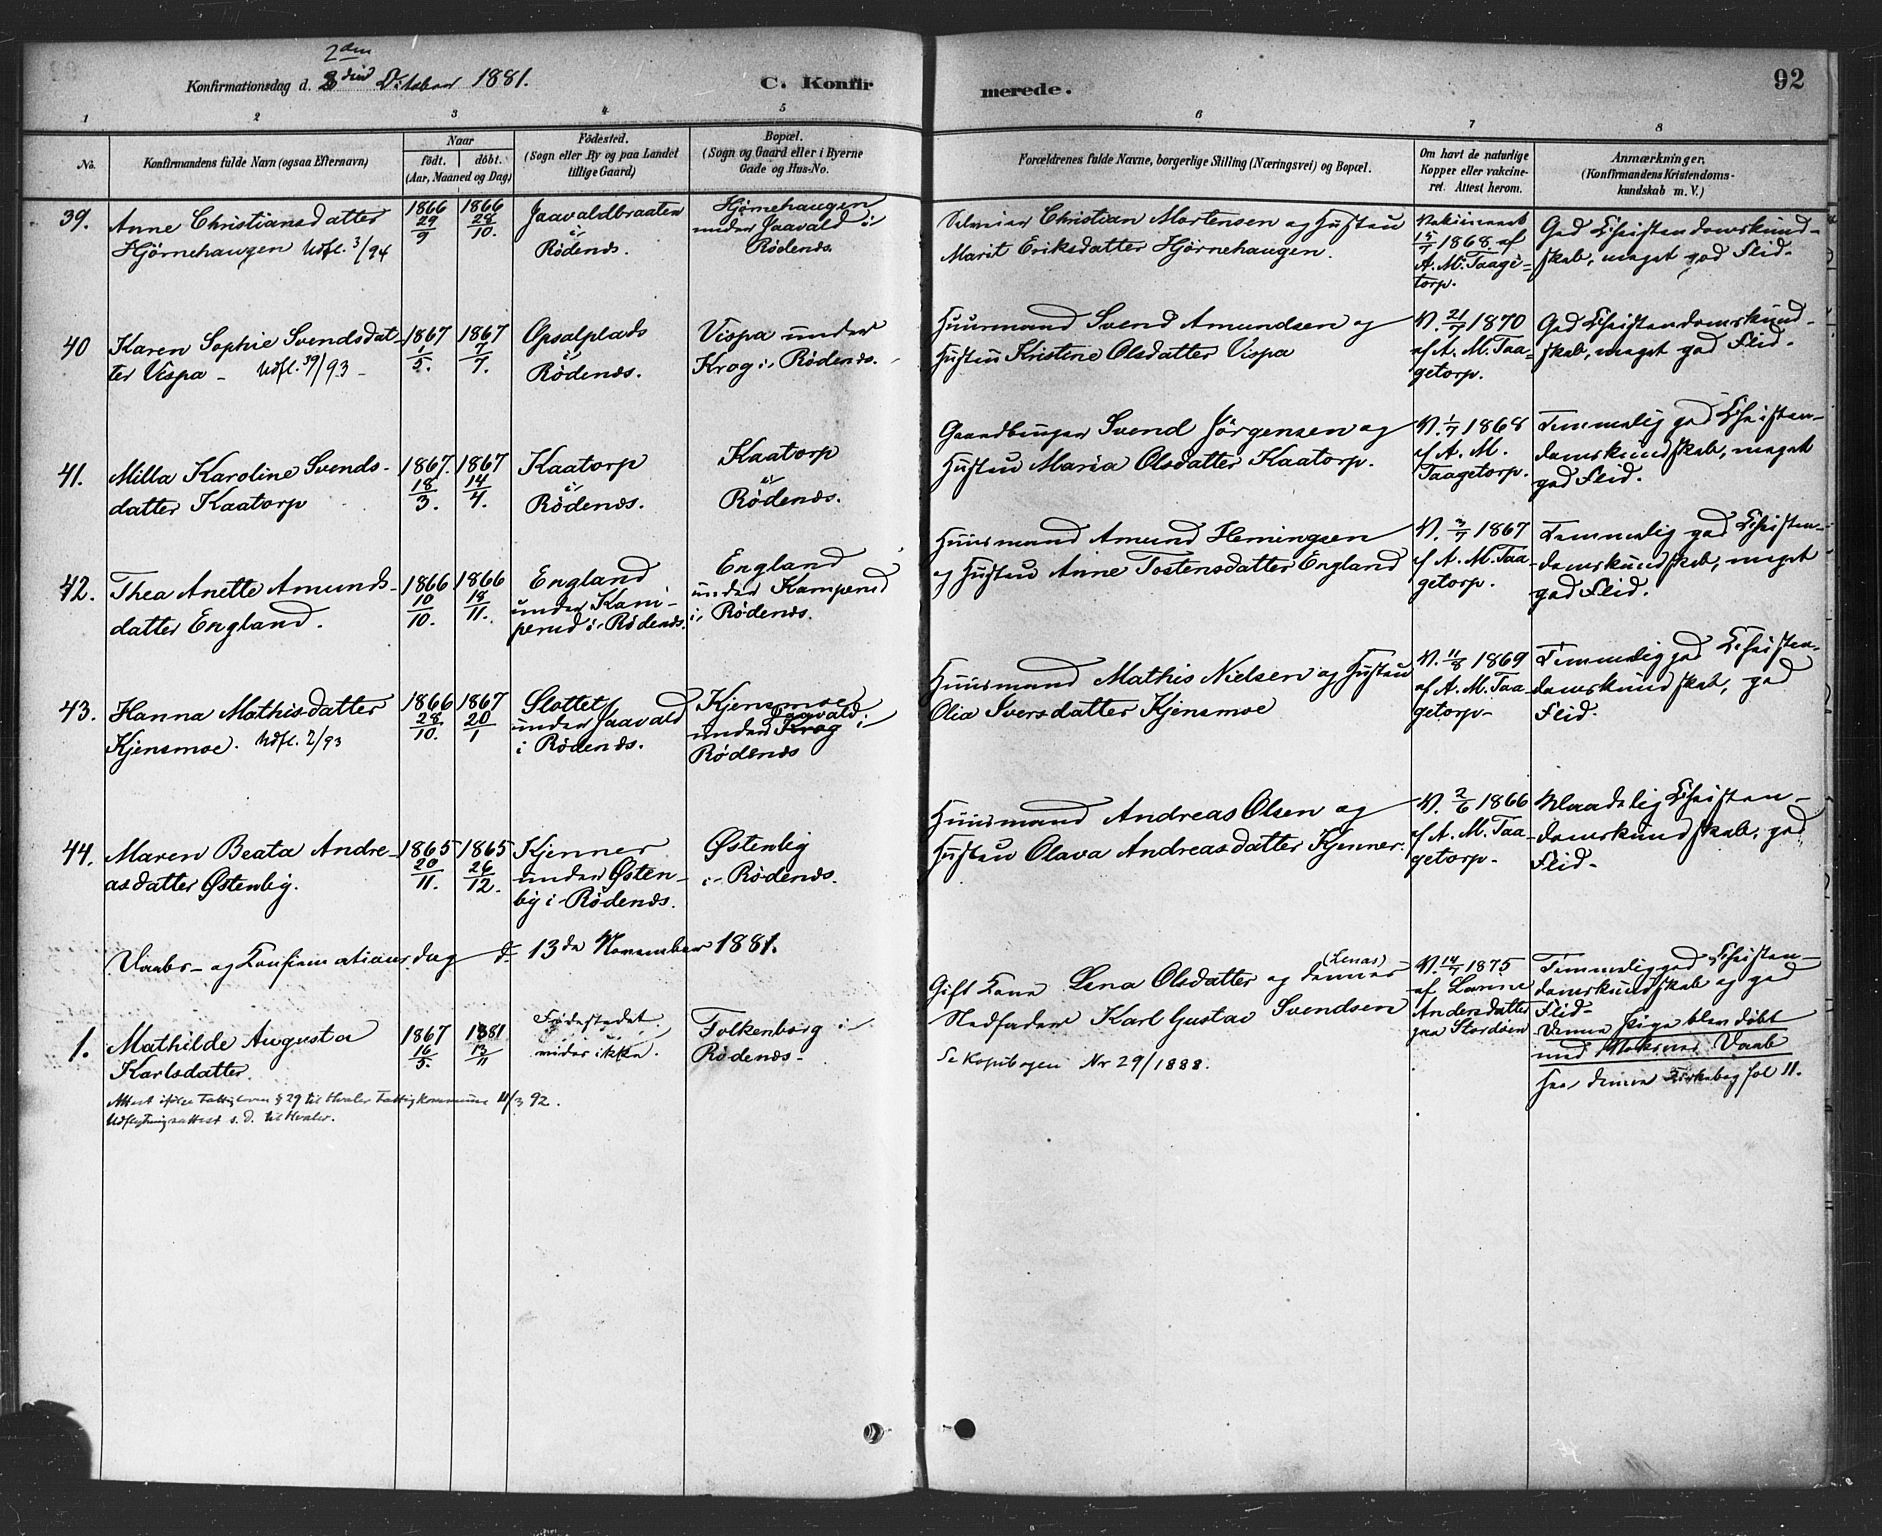 2den
Konfirmationsdag d. Oktober 1881.
C. Konfir
merede.
92
1
2
3
4
5
6
7
8
No.
Konfirmandens fulde Navn (ogsaa Efternavn)
Naar
født. døbt.
(Aar, Maaned og Dag)
Fødested.
(Sogn eller By og paa Landet
tillige Gaard)
Bopæl.
(Sogn og Gaard eller i Byerne
Gade og Hus-No.
Forældrenes fulde Navne, borgerlige Stilling (Næringsvei) og Bopæl.
Om havt de naturlige
Kopper eller vakcine-
ret. Attest herom.
Anmærkninger.
(Konfirmandens Kristendoms-
kundskab m. V.)
39.
Anne Christiansdatter
Hjørnehaugen Udfl. 3/94
1866
29/9
1866
28/10.
Jaavaldbraaten
i
Rødenæs.
Hjørnehaugen
under Jaavald i
Rødenæs.
Selveier Christian Mortensen og Hustru
Marit Eriksdatter Hjørnehaugen.
Vakcineret
15/7 1868. af
A. M. Taage-
torp.
God Christendomskund-
skab, meget god Flid.
40
Karen Sophie Svendsdat-
ter Vispa - Udfl. 39/93 -
1867
1/5.
1867
7/7.
Opsalplads
i
Rødenæs.
Vispa under
Krog i Rødenæs.
Huusmand Svend Amundsen og
Hustru Kristine Olsdatter Vispa
V. 21/7 1870
af A. M. Taa-
getorp.
God Christendomskund-
skab, meget god Flid.
41.
Milla Karoline Svends-
datter Kaatorp
1867.
18/3.
1867
14/4.
Kaatorp
i
Rødenæs.
Kaatorp
i
Rødenæs.
Gaardbruger Svend Jörgensen og
Hustru Maria Olsdatter Kaatorp.
V. 1/7 1868
af A. M.
Taagetorp.
Temmelig god Christen-
domskundskab, meget
god Flid.
42.
Thea Anette Amunds-
datter England.
1866
10/10.
1866
18/11.
England
under Kam-
perud i Rødenæs.
England
under Kamperud
i Rødenæs.
Huusmand Amund Hemingsen
og Hustru Anne Tostensdatter England
V. 3/7 1867
af A. M. Taa-
getorp.
Temmelig god Christen-
domskundskab, meget
god Flid.
43.
Hanna Mathisdatter
Kjensmoe. Udfl. 2/93
1866
28/10.
1867
20/1
Slottet
under Jaavald
i Rødenæs.
Kjensmoe
Jaavald
under Krog i
Rødenæs
Huusmand Mathis Nielsen og Hustru
Olia Iversdatter Kjensmoe
V. 11/8 1869
af A. M. Taa-
getorp-
Temmelig god Christen-
domskundskab, god
Flid.
44.
Maren Beata Andre-
asdatter Østenby.
1865
20/11.
1865
26/12.
Kjenner
under Østen-
by i Rødenæs.
Østenby
i Rødenæs.
Huusmand Andreas Olsen og
Hustru Olava Andreasdatter Kjenner.
V. 2/6 1866
af A. M. Taa-
getorp-
Maadelig Christen-
domskundskab, god
Flid-
Daabs- og Konfirmationsdag d. 13de November 1881.
1.
Mathilde Augusta
Karlsdatter.
1867
16/5.
1881
13/11
Fødestedet
vides ikke.
Folkenborg i
Rødenæs-
Gift Kone Lena Olsdatter og dennes (Lenas)
Stedfader Karl Gustav Svendsen
Se Kopibogen Nr 29/1888.
V. 14/7 1875
af Lovise
Andersdatter
paa Stordöen
Temmelig god Christen-
domskundskab og god
Flid-
Denne Pige blev døbt
med Voksnes Daab
See denne Kirkebog fol 11.
Attest ifölge Fattigloven § 29 til Hvaler Fattigkommune 11/3 92.
Udflytningsattest s. D. til Hvaler.